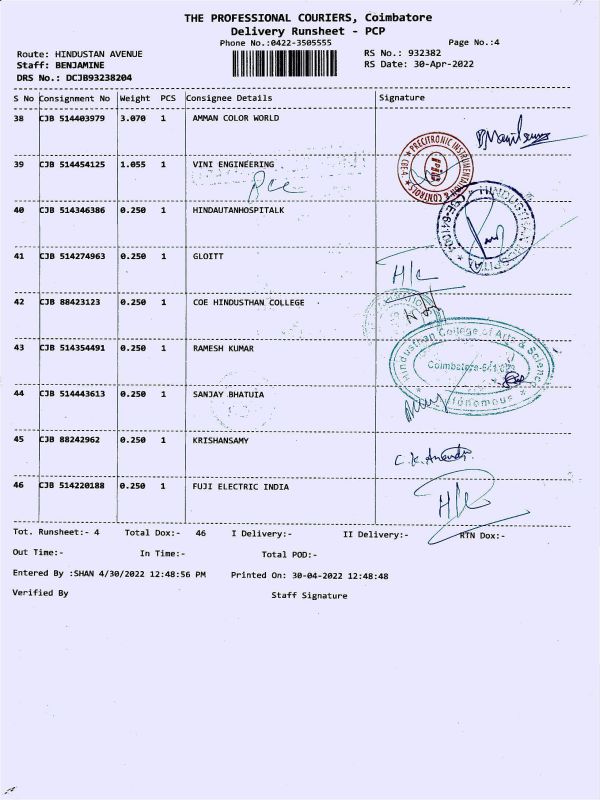 THE PROFESSIONAL COURIERS, Coimbatore
Delivery Runsheet - PCP
Phone No.:0422-3505555
Page No.:4
Route: HINDUSTAN AVENUE
RS No.: 932382
Staff: BENJAMINE
RS Date: 30-Apr-2022
DRS No.: DCJB93238204
S No Consignment No Weight PCS Consignee Details Signature
38 CJB 514403979 3.070 1 AMMAN COLOR WORLD
39 CJB 514454125 1.055 1 VINI ENGINEERING
PRECITRONIC INSTRUMENTATION & CONTROLS
CBE-4
40 CJB 514346386 0.250 1 HINDAUTANHOSPITALK
HINDUSTHAN HOSPITAL
41 CJB 514274963 0.250 1 GLOITT
H/c
42 CJB 88423123 0.250 1 COE HINDUSTHAN COLLEGE
43 CJB 514354491 0.250 1 RAMESH KUMAR
Hindusthan College of Arts & Science
Coimbatore-641
44 CJB 514443613 0.250 1 SANJAY BHATUIA
Autonomous
45 CJB 88242962 0.250 1 KRISHANSAMY
46 CJB 514220188 0.250 1 FUJI ELECTRIC INDIA
Tot. Runsheet:- 4 Total Dox:- 46 I Delivery:- II Delivery:- RTN Dox:-
Out Time:- In Time:- Total POD:-
Entered By :SHAN 4/30/2022 12:48:56 PM Printed On: 30-04-2022 12:48:48
Verified By Staff Signature